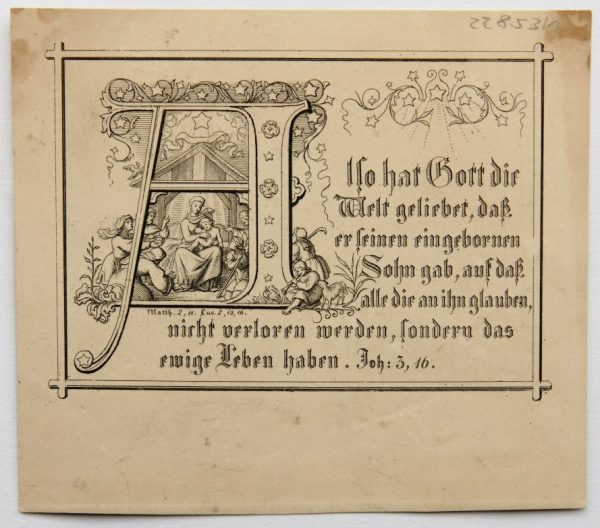 Also hat Gott die
Welt geliebet, daß
er seinen eingebornen
Sohn gab, auf daß
alle die an ihn glauben,
nicht verloren werden, sondern das
ewige Leben haben. Joh: 3, 16.
Matth. 2, 11. Luc. 2, 15, 16.